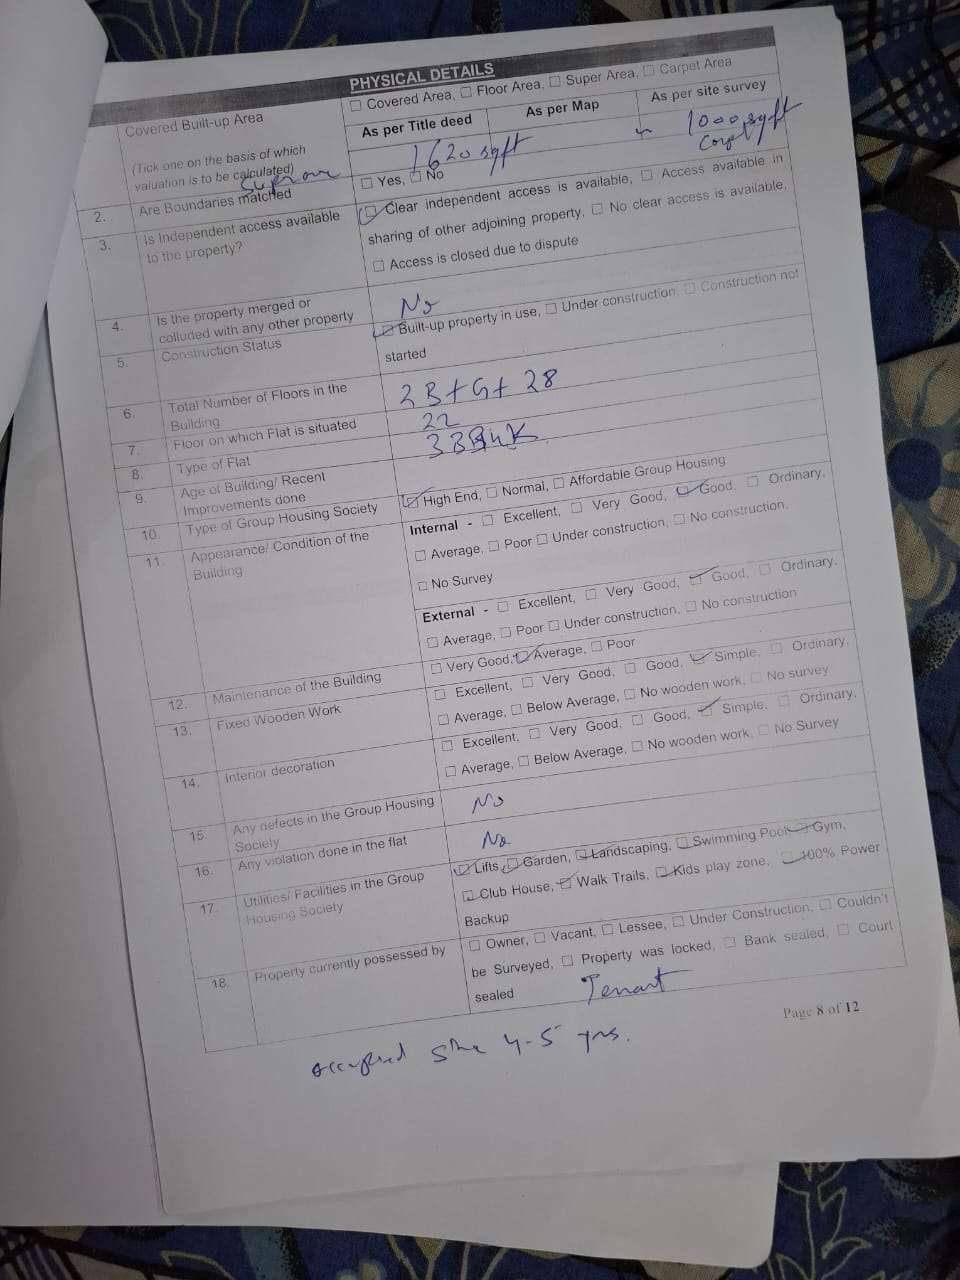 PHYSICAL DETAILS
Covered Built-up Area
(Tick one on the basis of which
valuation is to be calculated)
☐ Covered Area, ☐ Floor Area, ☐ Super Area, ☐ Carpet Area
As per Title deed As per Map As per site survey
1620 sqft 1000 sqft
2. Are Boundaries matched ☐ Yes, ☐ No
3. Is Independent access available
to the property?
☑ Clear independent access is available, ☐ Access available in
sharing of other adjoining property, ☐ No clear access is available,
☐ Access is closed due to dispute
4. Is the property merged or
colluded with any other property
No
5. Construction Status
☑ Built-up property in use, ☐ Under construction, ☐ Construction not
started
6. Total Number of Floors in the
Building
2B+G+28
7. Floor on which Flat is situated 22
8. Type of Flat 3BHK
9. Age of Building/ Recent
Improvements done
10. Type of Group Housing Society ☑ High End, ☐ Normal, ☐ Affordable Group Housing
11. Appearance/ Condition of the
Building
Internal - ☐ Excellent, ☐ Very Good, ☑ Good, ☐ Ordinary,
☐ Average, ☐ Poor ☐ Under construction, ☐ No construction,
☐ No Survey
External - ☐ Excellent, ☐ Very Good, ☑ Good, ☐ Ordinary,
☐ Average, ☐ Poor ☐ Under construction, ☐ No construction
12. Maintenance of the Building ☐ Very Good, ☑ Average, ☐ Poor
13. Fixed Wooden Work
☐ Excellent, ☐ Very Good, ☐ Good, ☑ Simple, ☐ Ordinary,
☐ Average, ☐ Below Average, ☐ No wooden work, ☐ No survey
14. Interior decoration
☐ Excellent, ☐ Very Good, ☐ Good, ☑ Simple, ☐ Ordinary,
☐ Average, ☐ Below Average, ☐ No wooden work, ☐ No Survey
15. Any defects in the Group Housing
Society
No
16. Any violation done in the flat No
17. Utilities/ Facilities in the Group
Housing Society
☑ Lifts, ☑ Garden, ☑ Landscaping, ☑ Swimming Pool, ☑ Gym,
☑ Club House, ☑ Walk Trails, ☑ Kids play zone, ☑ 100% Power
Backup
18. Property currently possessed by
☐ Owner, ☐ Vacant, ☐ Lessee, ☐ Under Construction, ☐ Couldn't
be Surveyed, ☐ Property was locked, ☐ Bank sealed, ☐ Court
sealed Tenant
Page 8 of 12
4-5 yrs.